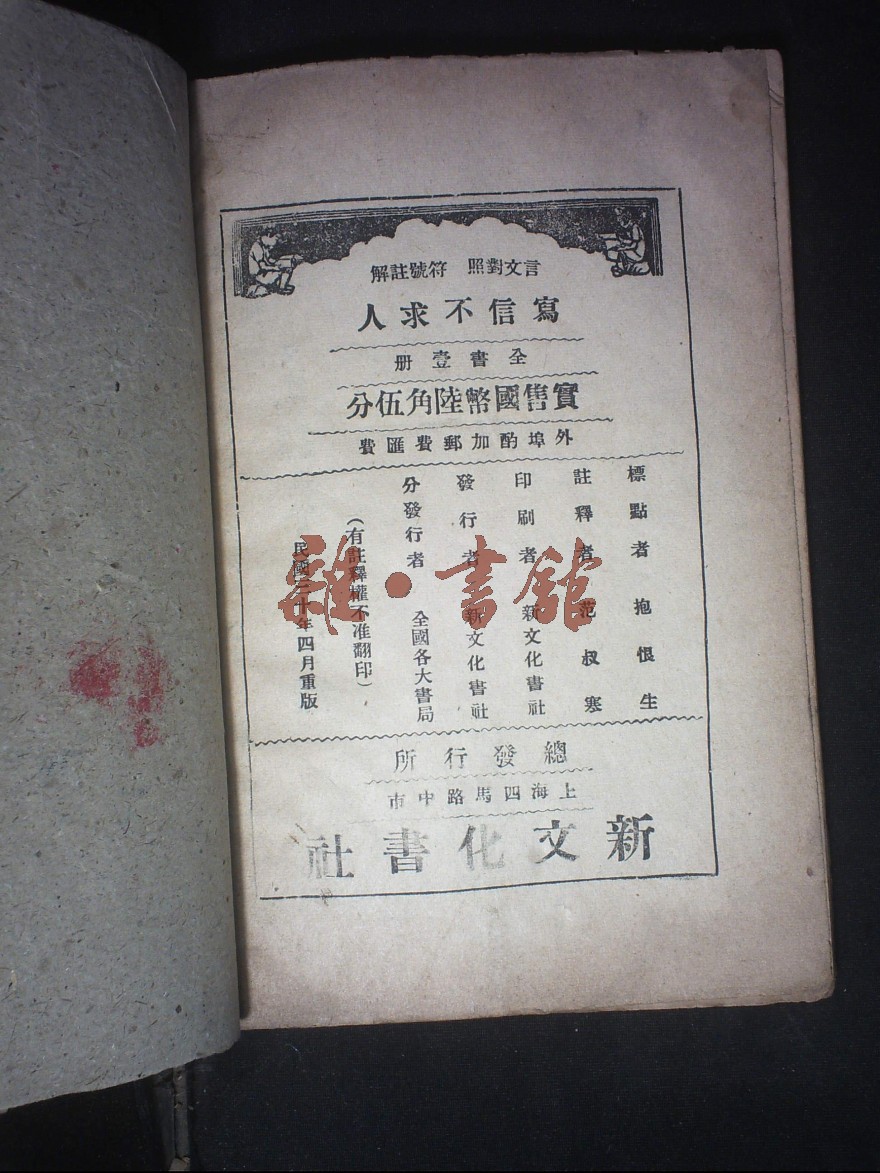 言文對照 符號註解
寫信不求人
全書壹册
實售國幣陸角伍分
外埠酌加郵費匯費
標點者 抱恨生
註釋者 范叔寒
印刷者 新文化書社
發行者 新文化書社
分發行者 全國各大書局
（有註釋權不准翻印）
民國三十年四月重版
總發行所
上海四馬路中市
新文化書社
雜·書館